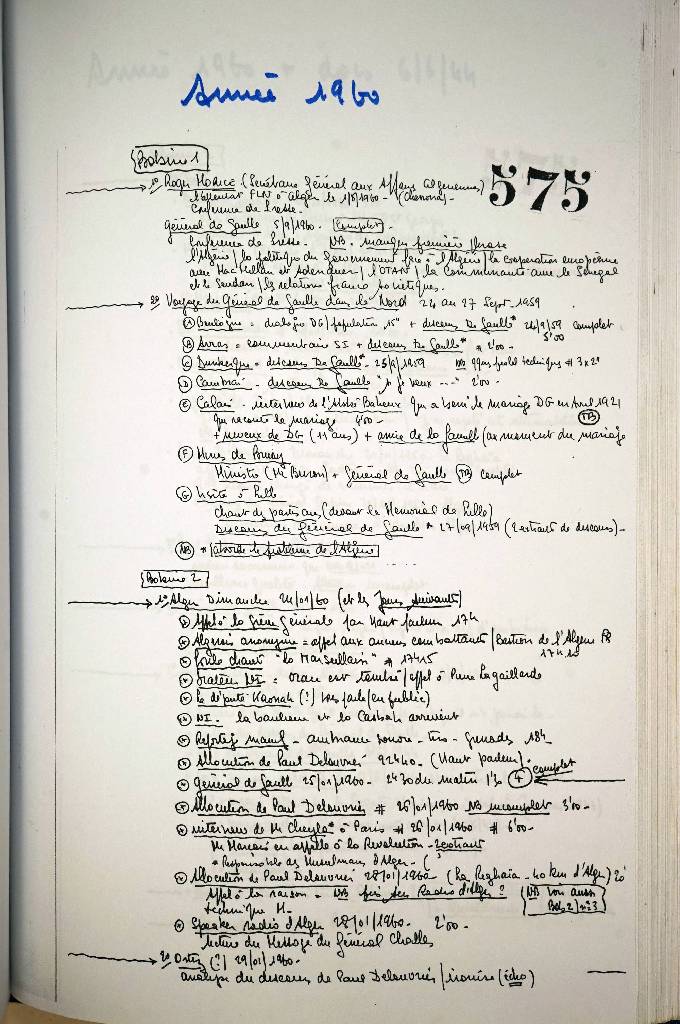 Année 1960
575
Bobine 1
1° Roger MORICE (Secrétaire Général aux Affaires Algériennes)
FLN à Alger le 1/8/1960 -
Conférence de Presse -
général de Gaulle 5/9/1960. Complet.
Conférence de Presse. NB. manque première phrase
l'Algérie / la politique du Gouvernement face à l'Algérie / la coopération européenne
avec MacMillan et Adenauer / l'OTAN / la Communauté avec le Sénégal
et le Soudan / les relations franco soviétiques.
2° Voyage du Général de Gaulle dans le Nord 24 au 27 Sept. 1959
A Boulogne = dialogue DG / population 15" + discours De Gaulle* 26/9/59 complet
5'00
B Arras = commentaire SI + discours De Gaulle* 2'00 -
C Dunkerque = discours De Gaulle* - 25/9/1959 NB qques probl techniques # 3 x 2"
D Cambrai - discours De Gaulle "je veux ---" 2'00 -
E Calais - interview de l'Abbé Baheux qui a béni le mariage DG en Avril 1921
qui raconte le mariage 4'00 - TB
+ neveux de DG (11 ans) + amie de la famille (au moment du mariage
F Mines de Bruay
Ministre (Mr Buron) + Général de Gaulle TB complet
G Visite à Lille
chant des partisans (devant le Mémorial de Lille)
Discours du Général de Gaulle * 27/09/1959 (extrait de discours) -
NB * aborde le problème de l'Algérie
Bobine 2
1° Alger Dimanche 24/01/60 (et les Jours Suivants)
Appel à la grève générale par Haut parleur 17h
Algérois anonyme = appel aux anciens combattants / Bastion de l'Algérie FR
17h10
Foule chante "la Marseillaise" # 17h15
Orateur NI = Oran est tombé / appel à Pierre Lagaillarde
Le député Kaouah (?) / en public)
NI - la banlieue et la Casbah arrivent
Reportage manif - ambiance sonore - tirs - grenades 18h
Allocution de Paul Delouvrier 22h40 - (Haut parleur) -
général de Gaulle 25/01/1960 - 2h30 du matin 1'30 4 complet
Allocution de Paul Delouvrier # 26/01/1960 NB incomplet 3'00 -
interview de Mr * à Paris # 26/01/1960 # 6'00 -
en appelle à la Révolution -
* Responsable des Musulmans d'Alger - (
Allocution de Paul Delouvrier 28/01/1960 (La Reghaïa - 40 km d'Alger) 20'
Appel à la raison = NB Radio d'Alger ? NB voir aussi
technique M - Bob 2 / n° 3
Speaker radio d'Alger 28/01/1960 - 2'00 -
lecture du Message du général Challe
2° Ortiz (?) 29/01/1960 -
analyse du discours de Paul Delouvrier / ironise (écho)